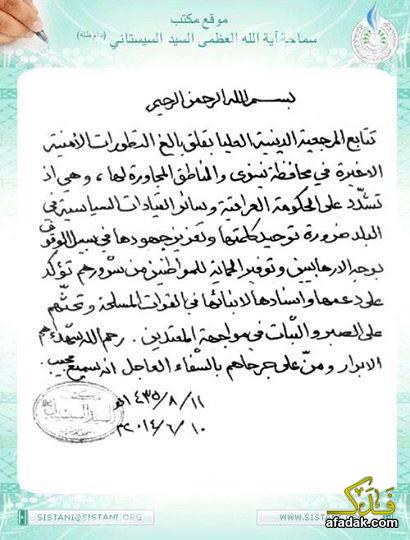 موقع مكتب
سماحة آية الله العظمى السيد السيستاني (دام ظله)
بسم الله الرحمن الرحيم
تتابع المرجعية الدينية العليا بقلق بالغ التطورات الأمنية
الاخيرة في محافظة نينوى والمناطق المجاورة لها، وهي إذ
تشدّد على الحكومة العراقية وسائر القيادات السياسية في
البلد ضرورة توحيد كلمتها وتعزيز جهودها في سبيل الوقوف
بوجه الارهابيين وتوفير الحماية للمواطنين من شرورهم تؤكد
على دعمها واسنادها لابنائها في القوات المسلحة وتحثّهم
على الصبر والثبات في مواجهة المعتدين . رحم الله شهداءهم
الابرار ومنّ على جرحاهم بالشفاء العاجل انه سميع مجيب .
١١/ ٨/ ١٤٣٥هـ
١٠/ ٦/ ٢٠١٤م
SISTANI@SISTANI.ORG
فدك
afadak.com